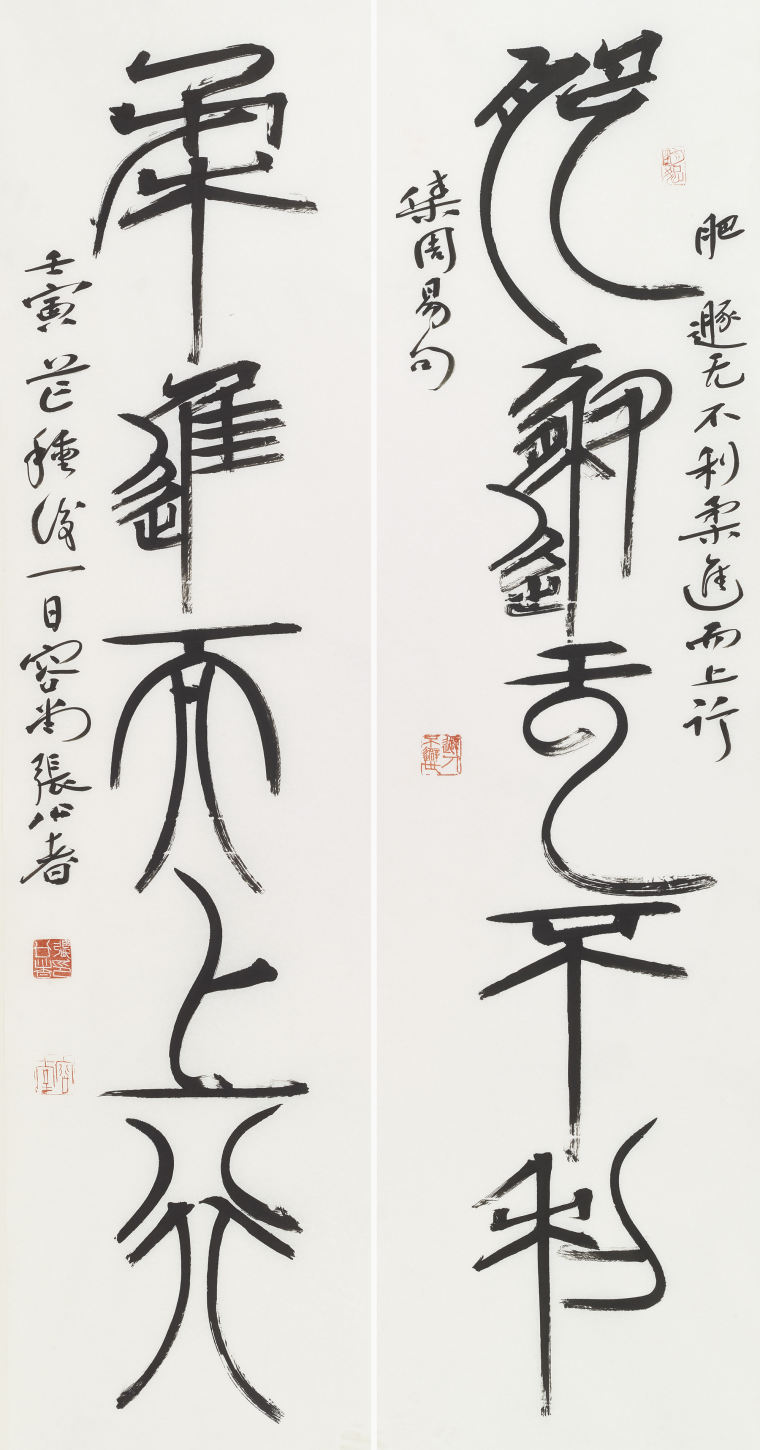 肥遯无不利
柔進而上行
肥遯无不利柔進而上行
集周易句
壬寅芒種後一日容堂張公者